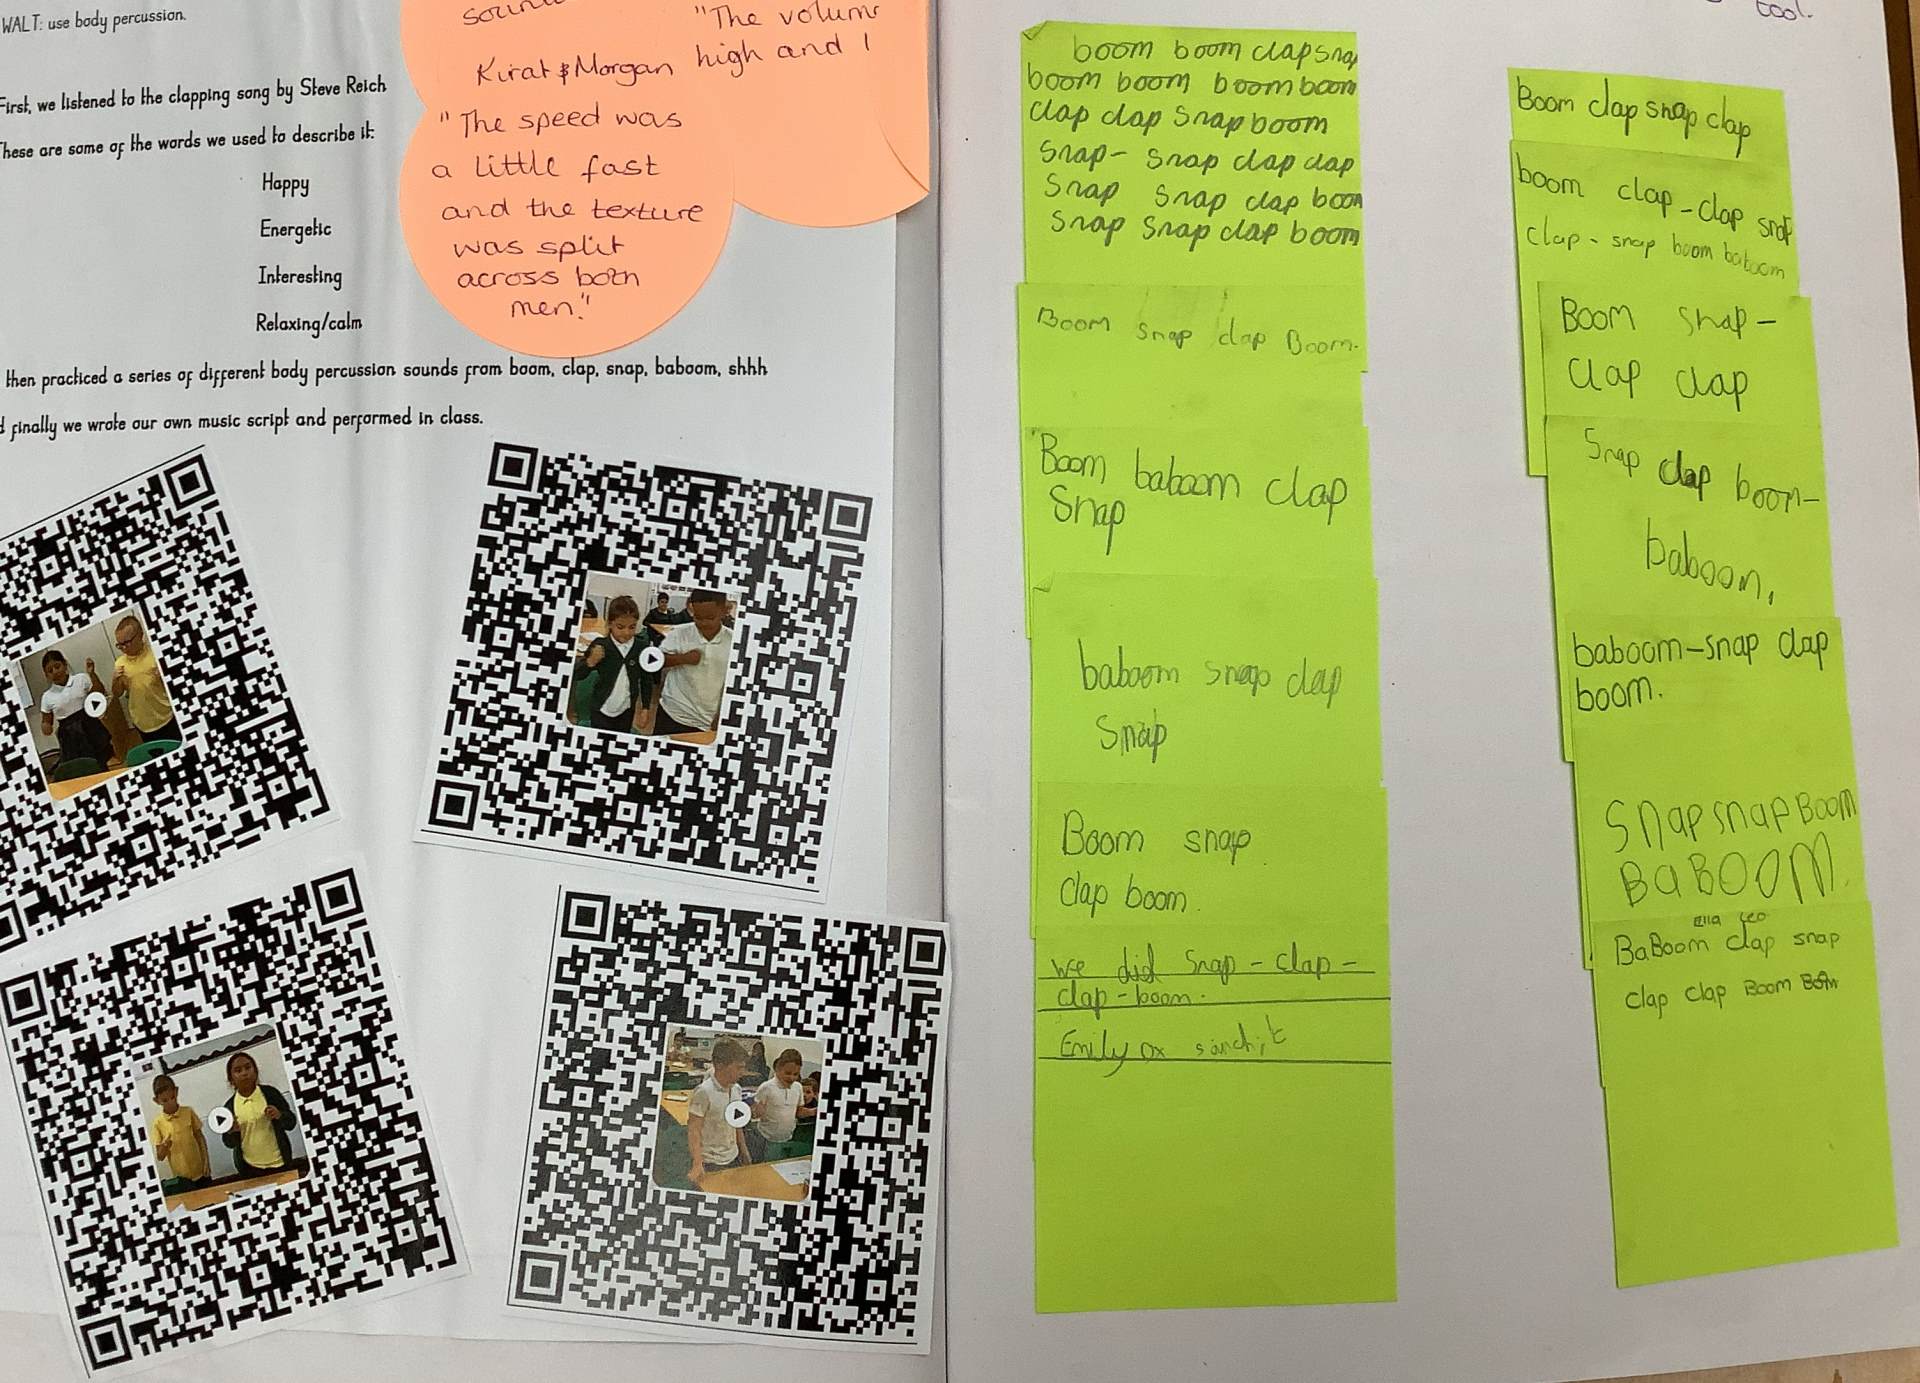 WALT: use body percussion.
First, we listened to the clapping song by Steve Reich
These are some of the words we used to describe it:
Happy
Energetic
Interesting
Relaxing/calm
then practiced a series of different body percussion sounds from boom, clap, snap, baboom, shhh
finally we wrote our own music script and performed in class.
Kirat & Morgan
"The speed was
a little fast
and the texture
was split
across both
men."
"The volume
high and I
tool.
boom boom clap snap
boom boom boom boom
clap clap snap boom
snap- snap clap clap
snap snap clap boom
snap snap clap boom
Boom snap clap Boom.
Boom baboom clap
snap
baboom snap clap
snap
Boom snap
clap boom.
we did snap-clap-
clap-boom.
Emily sanchit
Boom clap snap clap
boom clap-clap snap
clap- snap boom baboom
Boom snap-
clap clap
snap clap boom-
baboom,
baboom-snap clap
boom.
snap snap Boom
BaBOOM.
Ella Leo
BaBoom clap snap
clap clap Boom